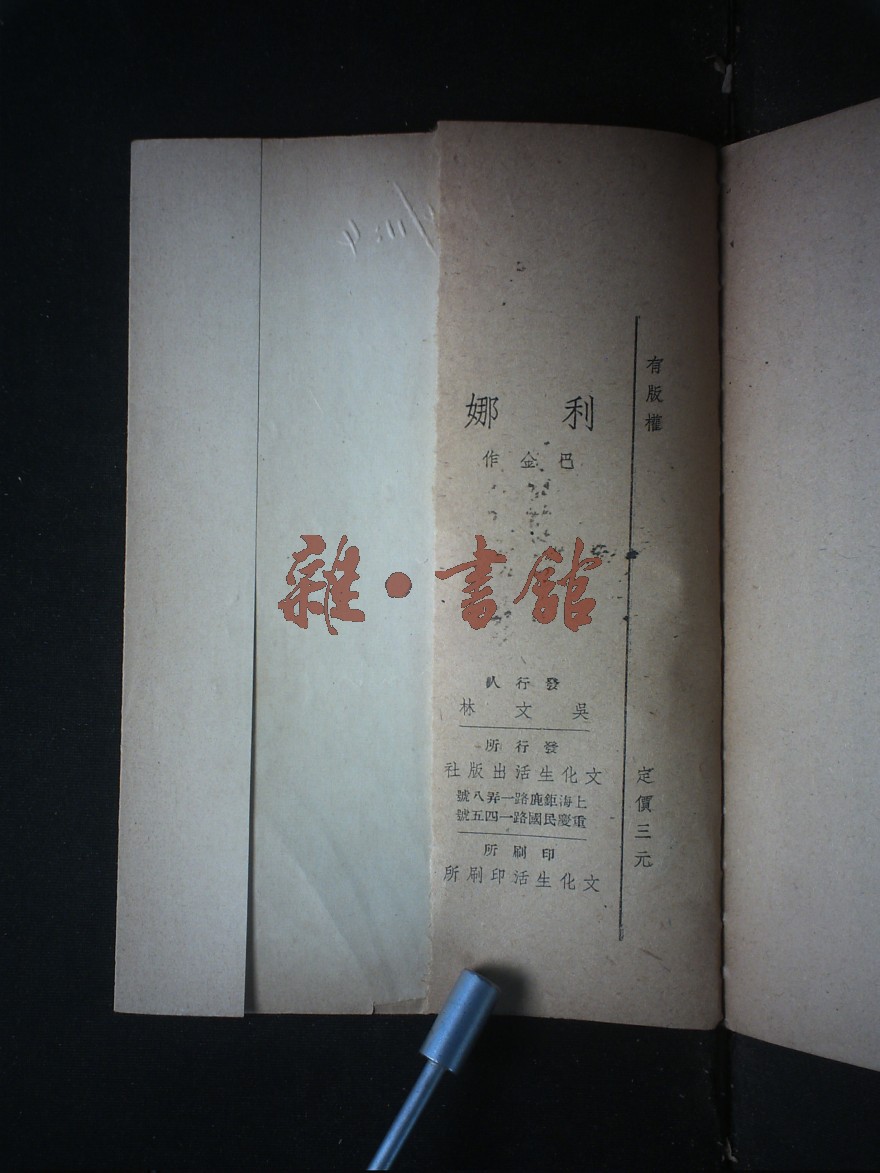 有版權
定價三元
利娜
巴金作
發行人
吳文林
發行所
文化生活出版社
上海鉅鹿路一弄八號
重慶民國路一四五號
印刷所
文化生活印刷所
雜·書館